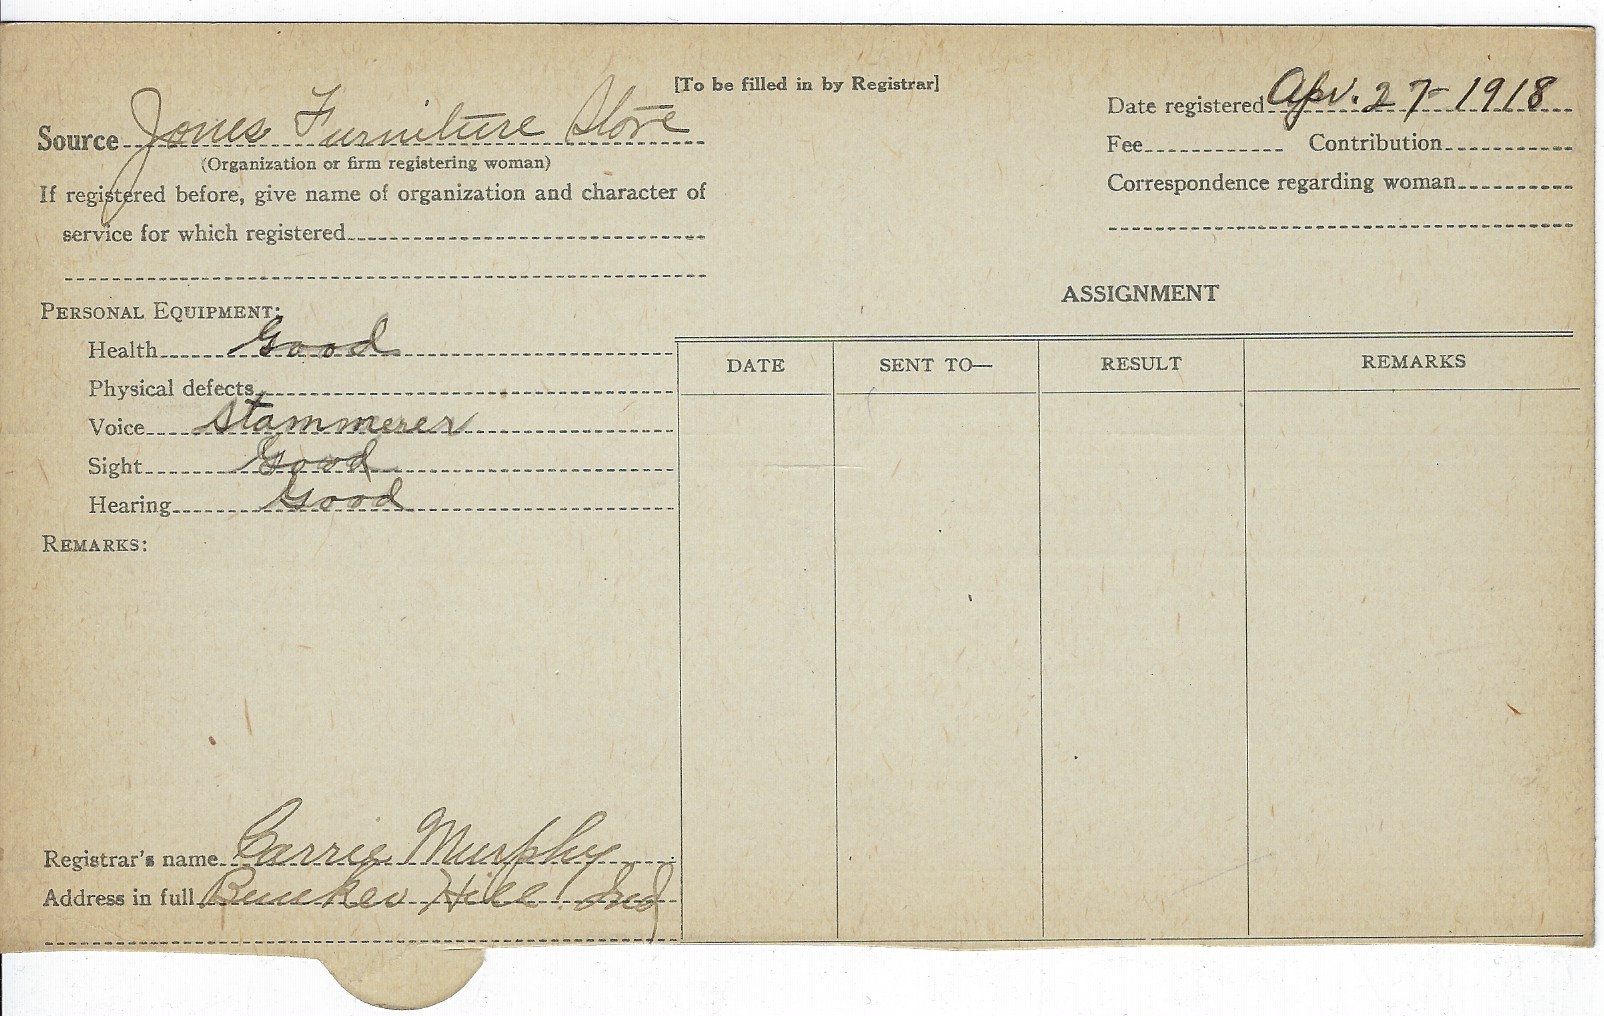 [To be filled in by Registrar]
Source Jones Furniture Store
(Organization or firm registering woman)
If registered before, give name of organization and character of
service for which registered
Date registered Apr. 27-1918
Fee Contribution
Correspondence regarding woman
PERSONAL EQUIPMENT:
Health Good
Physical defects
Voice Stammerer
Sight Good
Hearing Good
REMARKS:
Registrar's name Carrie Murphy
Address in full Bunker Hill Ind
ASSIGNMENT
DATE SENT TO— RESULT REMARKS